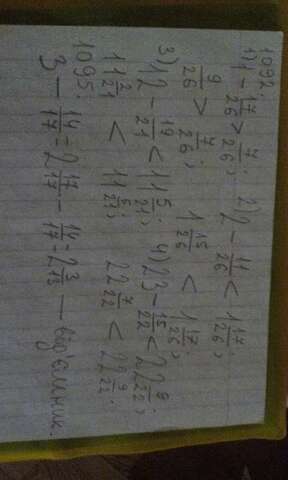 1092.
1) 1 - 17/26 > 7/26; 2) 2 - 11/26 < 1 17/26;
9/26 > 7/26; 1 15/26 < 1 17/26;
3) 12 - 19/21 < 11 5/21; 4) 23 - 15/22 < 22 9/22;
11 2/21 < 11 5/21; 22 7/22 < 22 9/22.
1095.
3 - 14/17 = 2 17/17 - 14/17 = 2 3/17 — від'ємник.